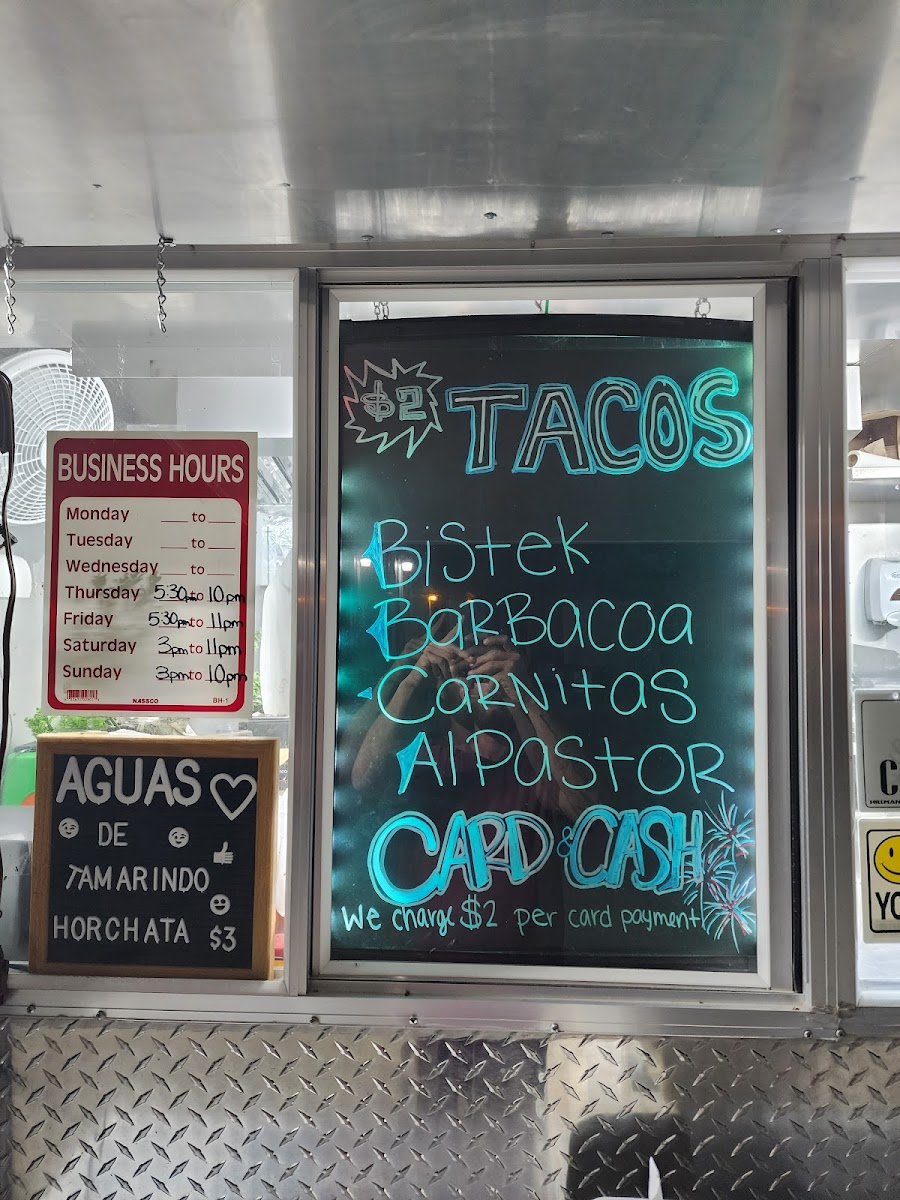 BUSINESS HOURS
Monday ___ to ___
Tuesday ___ to ___
Wednesday ___ to ___
Thursday 5:30pm to 10pm
Friday 5:30pm to 11pm
Saturday 3pm to 11pm
Sunday 3pm to 10pm
NASSCO
BH-1
AGUAS
DE
TAMARINDO
HORCHATA $3
$2 TACOS
Bistek
BaRBacoa
CaRNitas
Al PastoR
CARD & CASH
We charge $2 per card payment
C
HILLMAN
YO